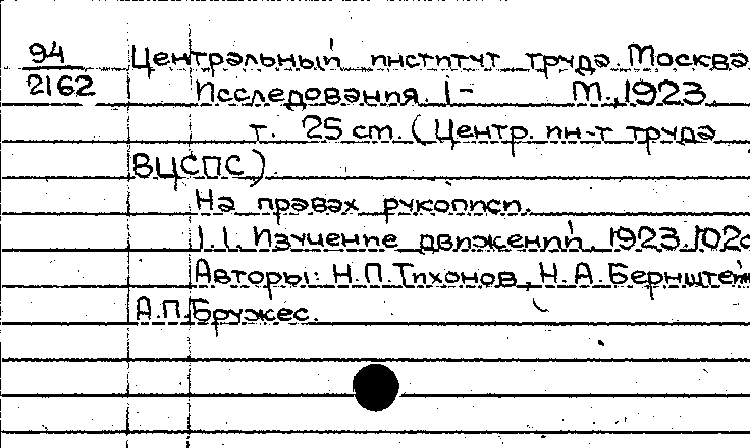 94 Центральный институт труда. Москва
2162 Исследования. 1- М., 1923.
т. 25 cm. (Центр. ин-т труда
ВЦСПС)
На правах рукописи.
1. 1. Изучение движений. 1923. 102с
Авторы: Н.П.Тихонов, Н.А.Бернштейн
А.П.Бружес.